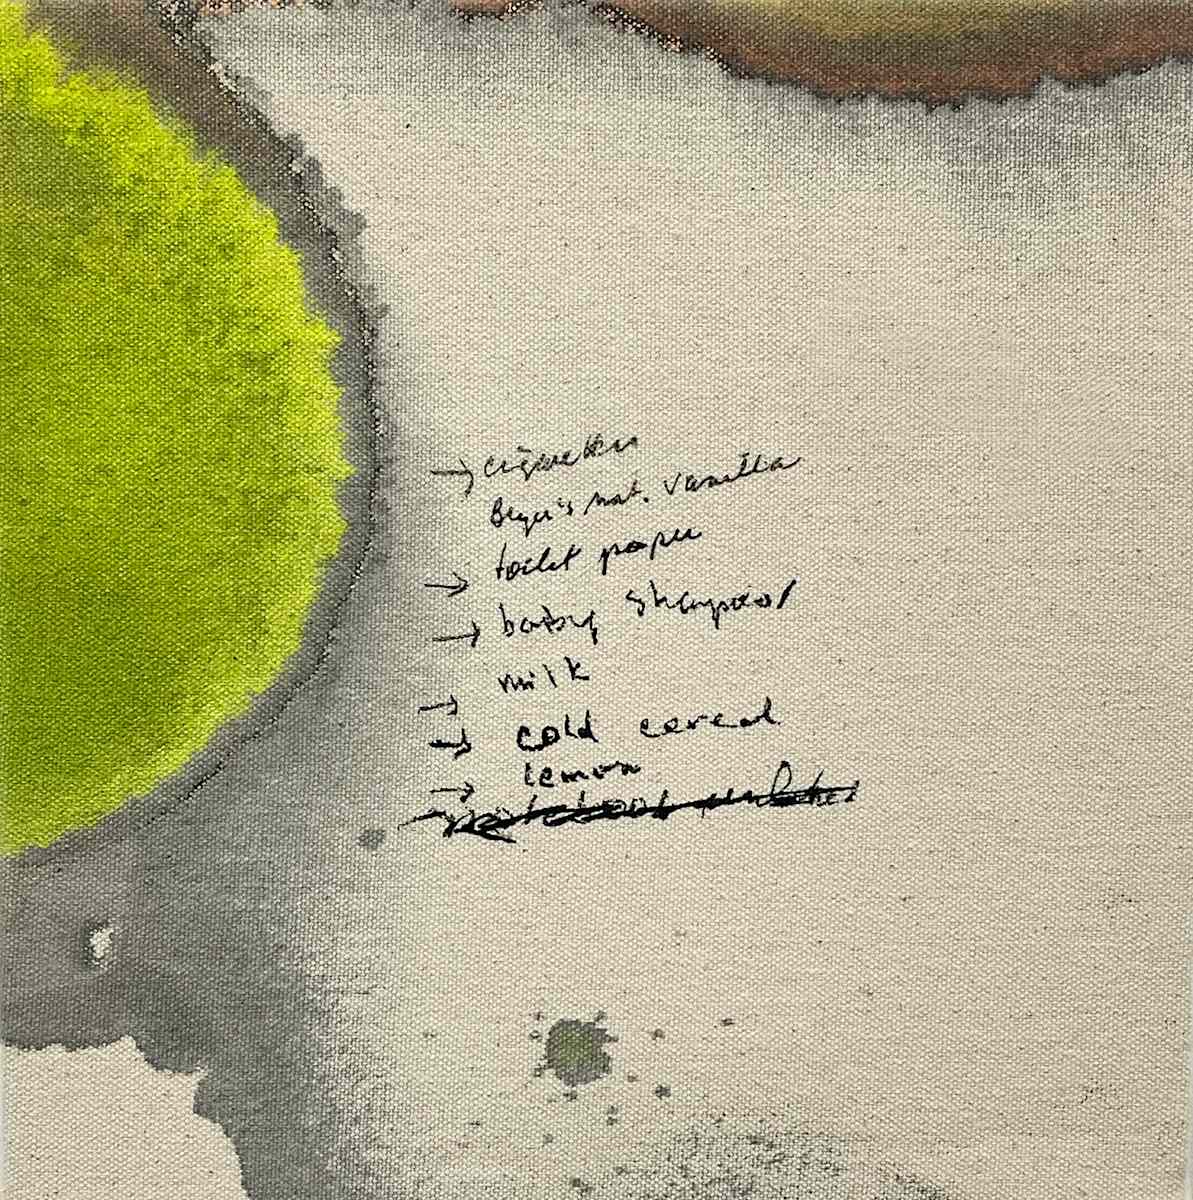 → cigarettes
Breyer's nat. vanilla
→ toilet paper
→ baby shampoo
→ milk
→ cold cereal
→ lemon
→ notebook